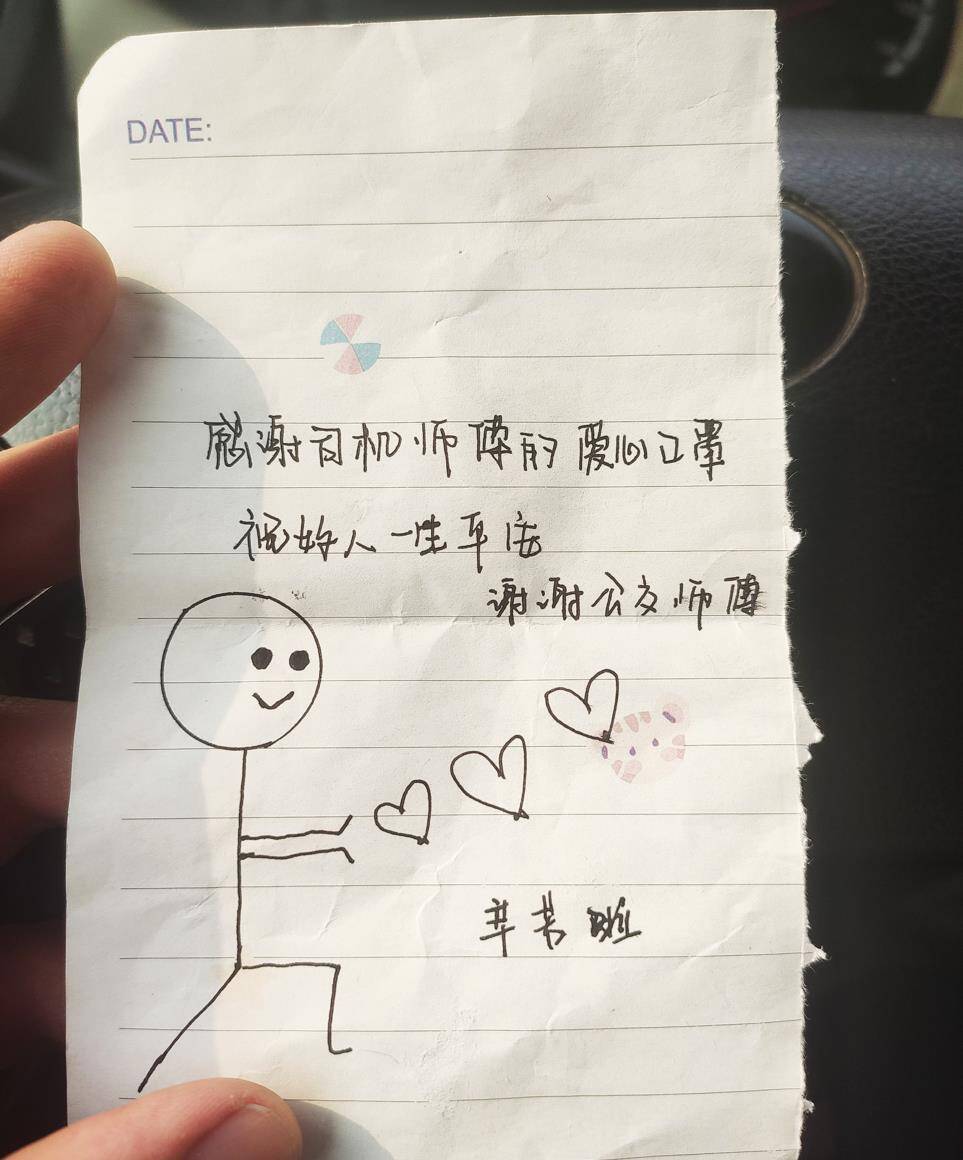 DATE:
感谢司机师傅的爱心口罩
祝好人一生平安
谢谢公交师傅
辛苦啦